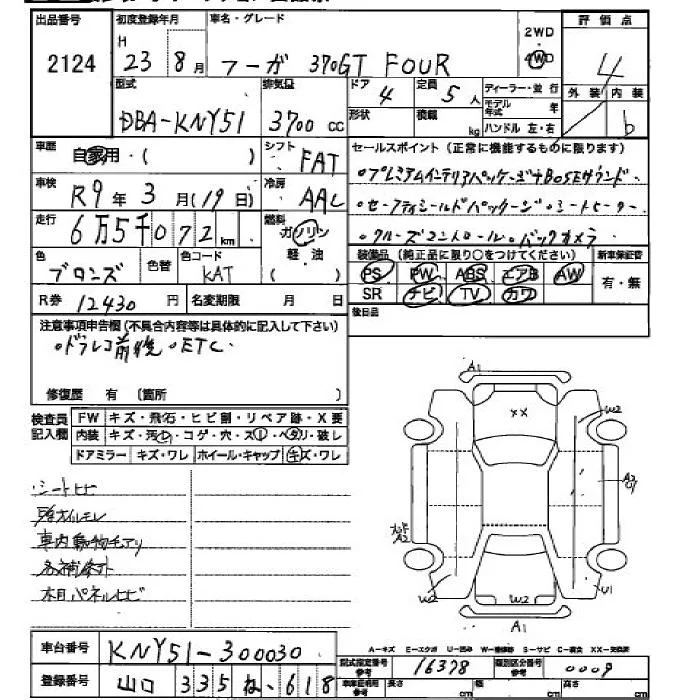 出品番号 初度登録年月 車名・グレード 2WD 評価点
2124 H 23 8月 フーガ 370GT FOUR 4WD 4
型式 排気量 ドア 定員 ディーラー・並行 外装 内装
DBA-KNY51 3700cc 4 5人 モデル年式 年 b
形状 積載 kg ハンドル 左・右
車歴 自家用・( ) シフト FAT セールスポイント(正常に機能するものに限ります)
車検 R9年3月(19日) 冷房 AAC ・プレミアムインテリアパッケージ+BOSEサウンド・
走行 6万5千072km 燃料 ガソリン ・セーフティシールドパッケージ・シートヒーター・
軽・油 ・クルーズコントロール・バックカメラ
色 ブロンズ 色替 色コード KAT ( ) 装備品(純正品に限り○をつけてください) 新車保証書
PS PW ABS エアB AW 有・無
R券 12430円 名変期限 月 日 SR ナビ TV カワ
後日品
注意事項申告欄(不具合内容等は具体的に記入して下さい)
・ドラレコ前後・ETC・
修復歴 有 (箇所 )
検査員記入欄 FW キズ・飛石・ヒビ割・リペア跡・X要
内装 キズ・汚レ・コゲ・穴・スレ・ヘタリ・破レ
ドアミラー キズ・ワレ ホイール・キャップ キズ・ワレ
A1
XX
W2
A2
U1
A2
W2
W2
U1
A1
シートヒビ
車内動物チェアリ
各補修所
木目パネルヒビ
A-キズ E-エクボ U-凹み W-補修跡 S-サビ C-腐食 XX-交換済
車台番号 KNY51-300030
型式指定番号 参考 16378 類別区分番号 参考 0009
登録番号 山口 335 ね 618
車庫証明用 参考 長さ cm 幅 cm 高さ cm